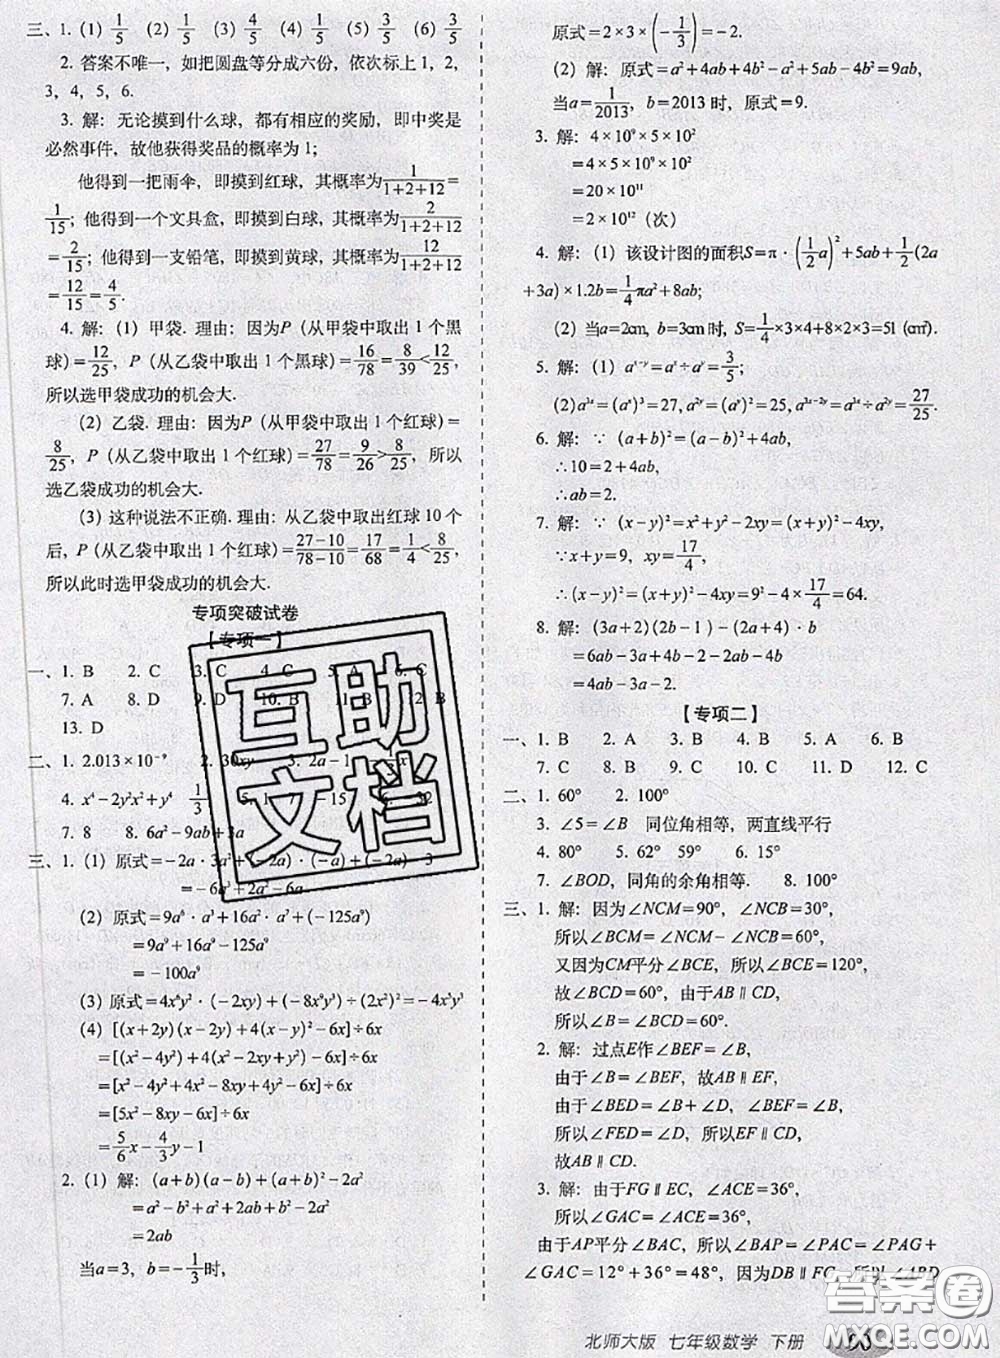 三、1. (1) 1/5 (2) 1/5 (3) 4/5 (4) 1/5 (5) 2/5 (6) 3/5
2. 答案不唯一，如把圆盘等分成六份，依次标上 1，2，
3，4，5，6.
3. 解：无论摸到什么球，都有相应的奖励，即中奖是
必然事件，故他获得奖品的概率为 1；
他得到一把雨伞，即摸到红球，其概率为1/(1+2+12)=
1/15；他得到一个文具盒，即摸到白球，其概率为2/(1+2+12)
=2/15；他得到一支铅笔，即摸到黄球，其概率为12/(1+2+12)
=12/15=4/5.
4. 解：(1) 甲袋. 理由：因为P (从甲袋中取出 1 个黑
球)=12/25，P (从乙袋中取出 1 个黑球)=16/78=8/39<12/25，
所以选甲袋成功的机会大.
(2) 乙袋. 理由：因为P (从甲袋中取出 1 个红球)=
8/25，P (从乙袋中取出 1 个红球)=27/78=9/26>8/25，所以
选乙袋成功的机会大.
(3) 这种说法不正确. 理由：从乙袋中取出红球 10 个
后，P (从乙袋中取出 1 个红球)=(27-10)/(78-10)=17/68=1/4<8/25，
所以此时选甲袋成功的机会大.
专项突破试卷
【专项一】
一、1. B 2. C 3. C 4. C 5. A 6. C
7. A 8. D 9. D 10. B 11. B 12. B
13. D
二、1. 2.013×10⁻⁹ 2. 30xy 3. 2a-1
4. x⁴-2y²x²+y⁴ 1/3 5. 1 7 -15 6. 32
7. 8 8. 6a²-9ab+3a
三、1. (1) 原式=-2a·3a²+(-2a)·(-a)+(-2a)·3
=-6a³+2a²-6a
(2) 原式=9a⁶·a³+16a²·a⁷+(-125a⁹)
=9a⁹+16a⁹-125a⁹
=-100a⁹
(3) 原式=4x⁶y²·(-2xy)+(-8x⁹y³)÷(2x²)=-4x⁷y³
(4) [(x+2y)(x-2y)+4(x-y)²-6x]÷6x
=[(x²-4y²)+4(x²-2xy+y²)-6x]÷6x
=[x²-4y²+4x²-8xy+4y²-6x]÷6x
=[5x²-8xy-6x]÷6x
=5/6x-4/3y-1
2. (1) 解：(a+b)(a-b)+(a+b)²-2a²
=a²-b²+a²+2ab+b²-2a²
=2ab
当a=3，b=-1/3时，
原式=2×3×(-1/3)=-2.
(2) 解：原式=a²+4ab+4b²-a²+5ab-4b²=9ab，
当a=1/2013，b=2013 时，原式=9.
3. 解：4×10⁹×5×10²
=4×5×10⁹×10²
=20×10¹¹
=2×10¹²（次）
4. 解：(1) 该设计图的面积S=π·(1/2a)²+5ab+1/2(2a
+3a)×1.2b=1/4πa²+8ab；
(2) 当a=2cm，b=3cm 时，S=1/4×3×4+8×2×3=51 (cm²).
5. 解：(1) aˣ⁻ʸ=aˣ÷aʸ=3/5；
(2)a³ˣ=(aˣ)³=27,a²ʸ=(aʸ)²=25,a³ˣ⁻²ʸ=a³ˣ÷a²ʸ=27/25.
6. 解：∵ (a+b)²=(a-b)²+4ab，
∴10=2+4ab，
∴ab=2.
7. 解：∵ (x-y)²=x²+y²-2xy=(x+y)²-4xy，
∵x+y=9，xy=17/4，
∴(x-y)²=(x+y)²-4xy=9²-4×17/4=64.
8. 解：(3a+2)(2b-1)-(2a+4)·b
=6ab-3a+4b-2-2ab-4b
=4ab-3a-2.
【专项二】
一、1. B 2. A 3. B 4. B 5. A 6. B
7. C 8. D 9. B 10. C 11. D 12. C
二、1. 60° 2. 100°
3. ∠5=∠B 同位角相等，两直线平行
4. 80° 5. 62° 59° 6. 15°
7. ∠BOD，同角的余角相等. 8. 100°
三、1. 解：因为∠NCM=90°，∠NCB=30°，
所以∠BCM=∠NCM-∠NCB=60°，
又因为CM平分∠BCE，所以∠BCE=120°，
故∠BCD=60°，由于AB∥CD，
所以∠B=∠BCD=60°.
2. 解：过点E作∠BEF=∠B，
由于∠BEF=∠B，故AB∥EF，
由于∠BED=∠B+∠D，∠BED=∠BEF+∠FED，
所以∠FED=∠D，所以EF∥CD，
故AB∥CD.
3. 解：由于FG∥EC，∠ACE=36°，
所以∠GAC=∠ACE=36°，
由于AP平分∠BAC，所以∠BAP=∠PAC=∠PAG+
∠GAC=12°+36°=48°，因为DB∥FG，所以∠ABD
北师大版 七年级数学 下册
90
互助
文档
答案卷
MXQE.COM